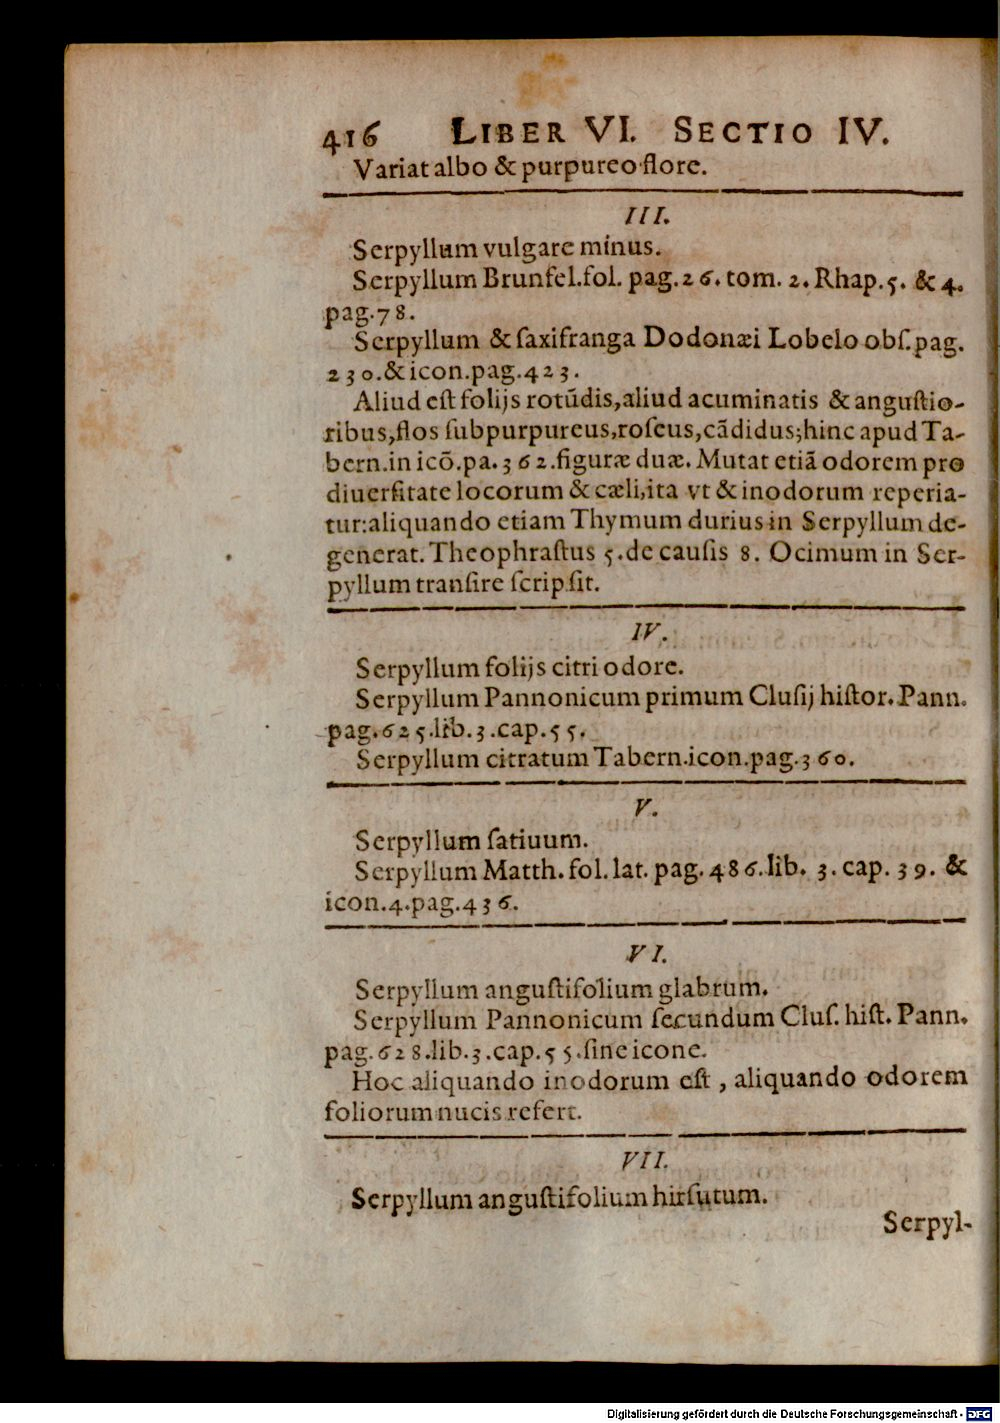 416 LIBER VI. SECTIO IV.
Variat albo & purpureo flore.
III.
Serpyllum vulgare minus.
Serpyllum Brunfel.fol. pag.26. tom. 2. Rhap.5. & 4.
pag.78.
Serpyllum & ſaxifranga Dodonæi Lobelo obſ.pag.
230.& icon.pag.423.
Aliud eſt folijs rotūdis,aliud acuminatis & anguſtio-
ribus,flos ſubpurpureus,roſeus,cādidus;hinc apud Ta-
bern.in icō.pa.362.figuræ duæ. Mutat etiā odorem pro
diuerſitate locorum & cæli,ita vt & inodorum reperia-
tur:aliquando etiam Thymum durius in Serpyllum de-
generat. Theophraſtus 5.de cauſis 8. Ocimum in Ser-
pyllum tranſire ſcripſit.
IV.
Serpyllum folijs citri odore.
Serpyllum Pannonicum primum Cluſij hiſtor. Pann.
pag.625.lib.3.cap.55.
Serpyllum citratum Tabern.icon.pag.360.
V.
Serpyllum ſatiuum.
Serpyllum Matth. fol. lat. pag. 486.lib. 3. cap. 39. &
icon.4.pag.436.
VI.
Serpyllum anguſtifolium glabrum.
Serpyllum Pannonicum ſecundum Cluſ. hiſt. Pann.
pag.628.lib.3.cap.55.ſine icone.
Hoc aliquando inodorum eſt , aliquando odorem
foliorum nucis refert.
VII.
Serpyllum anguſtifolium hirſutum.
Serpyl-
Digitalisierung gefördert durch die Deutsche Forschungsgemeinschaft - DFG